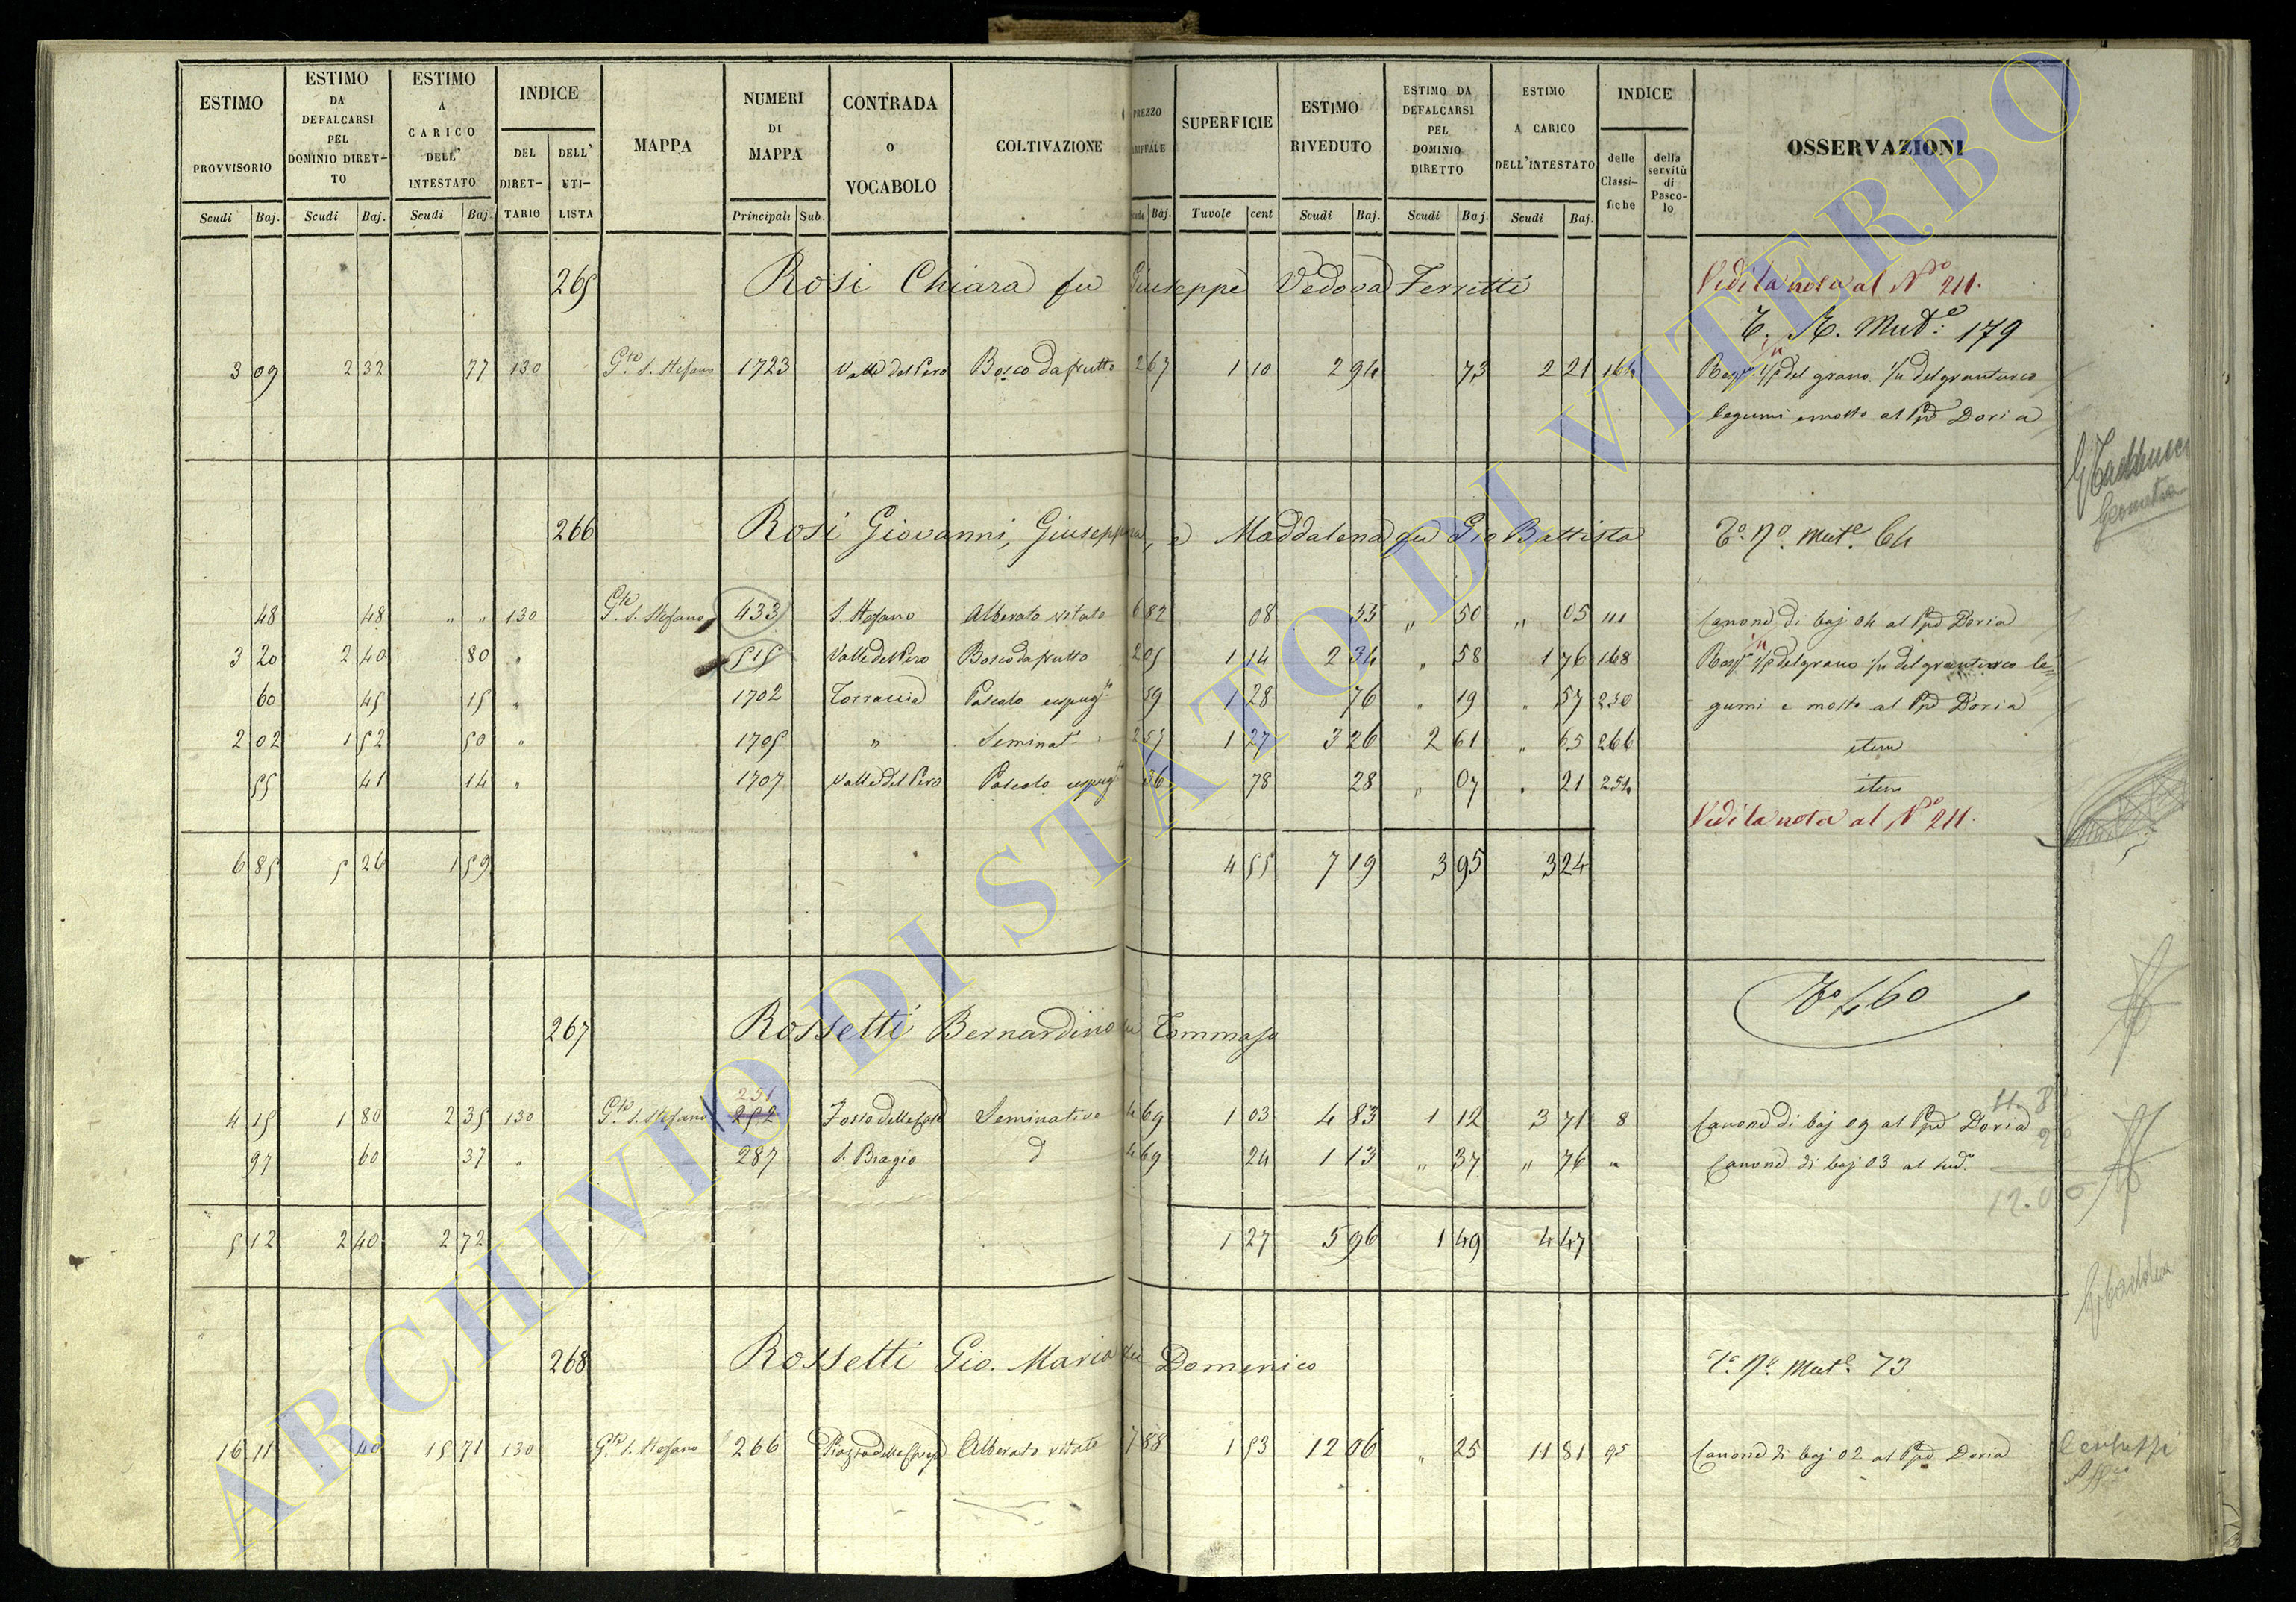 ESTIMO PROVVISORIO
ESTIMO DA DEFALCARSI PEL DOMINIO DIRET-TO
ESTIMO A CARICO DELL' INTESTATO
INDICE
DEL DIRET-TARIO
DELL' UTI-LISTA
MAPPA
NUMERI DI MAPPA
CONTRADA o VOCABOLO
COLTIVAZIONE
PREZZO
SUPERFICIE
ESTIMO RIVEDUTO
ESTIMO DA DEFALCARSI PEL DOMINIO DIRETTO
ESTIMO A CARICO DELL'INTESTATO
INDICE
delle Classi-fiche
della servitù di Pasco-lo
OSSERVAZIONI
Scudi Baj. Scudi Baj. Scudi Baj. Principali Sub. Baj. Tavole cent Scudi Baj. Scudi Baj. Scudi Baj.
265 Rosi Chiara fu Giuseppe Vedova Ferretti Vedi la nota al N° 211.
Mut.e 179
3 09 2 32 77 130 G.te S. Stefano 1723 Valle del Pero Bosco da frutto 2 67 1 10 2 94 73 2 21 164 del grano del granturco
legumi e mosto al Ppe Doria
266 Rosi Giovanni, Giuseppa, e Maddalena fu Gio Battista T.° N.° Mut.e 64
48 48 " " 130 G.te S. Stefano 433 S. Stefano Alberato vitato 6 82 08 55 " 50 " 05 111 Canone di baj 04 al Ppe Doria
3 20 2 40 80 " 515 Valle del Pero Bosco da frutto 2 05 1 14 2 34 " 58 1 76 168 del grano del granturco le=
60 45 15 " 1702 Torraccia Pascolo cespug.to 59 1 28 76 " 19 " 57 250 gumi e mosto al Ppe Doria
2 02 1 52 50 " 1705 " Seminat.o 2 57 1 27 3 26 2 61 " 65 266 item
55 41 14 " 1707 Valle del Pero Pascolo cespug.to 36 78 28 " 07 " 21 254 item
Vedi la nota al N° 211.
6 85 5 26 1 59 4 55 7 19 3 95 3 24
G Tadducci
Geometra
T.° 460
267 Rossetti Bernardino fu Tommaso
251
4 15 1 80 2 35 130 G.te S. Stefano 252 Fosso delle Cave Seminativo 4 69 1 03 4 83 1 12 3 71 8 Canone di baj 09 al Ppe Doria
97 60 37 " 287 S. Biagio d 4 69 24 1 13 " 37 " 76 " Canone di baj 03 al sud.o
5 12 2 40 2 72 1 27 5 96 1 49 4 47
268 Rossetti Gio. Maria fu Domenico T.° N.° Mut.e 73
16 11 40 15 71 130 G.te S. Stefano 266 Alberato vitato 7 88 1 53 12 06 " 25 11 81 95 Canone di baj 02 al Ppe Doria
ARCHIVIO DI STATO DI VITERBO